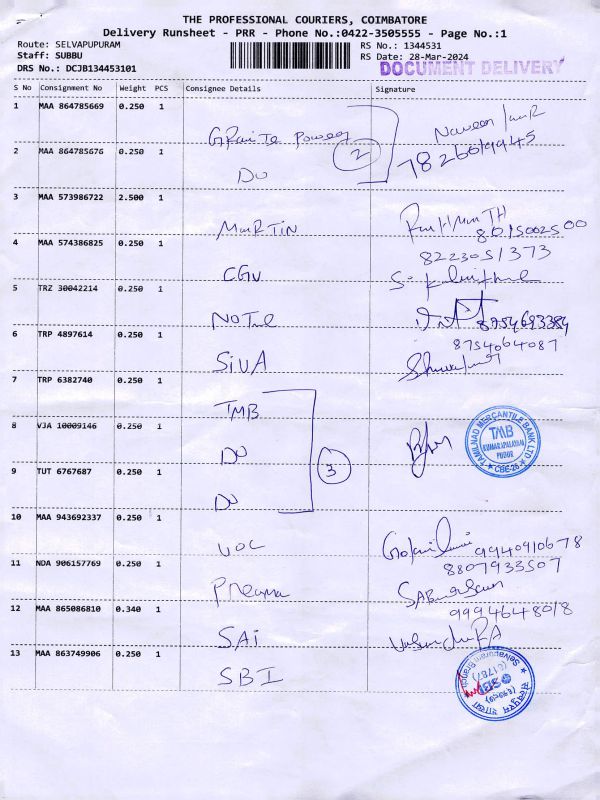 THE PROFESSIONAL COURIERS, COIMBATORE
Delivery Runsheet - PRR - Phone No.:0422-3505555 - Page No.:1
Route: SELVAPUPURAM
RS No.: 1344531
Staff: SUBBU
RS Date: 28-Mar-2024
DRS No.: DCJB134453101
DOCUMENT DELIVERY
S No Consignment No Weight PCS Consignee Details Signature
1 MAA 864785669 0.250 1
2 MAA 864785676 0.250 1
2
DO
7826019945
3 MAA 573986722 2.500 1
MaRTIN
8015002500
4 MAA 574386825 0.250 1
8223051373
CGV
5 TRZ 30042214 0.250 1
8754693384
6 TRP 4897614 0.250 1
8754064087
SiVA
7 TRP 6382740 0.250 1
TMB
8 VJA 10009146 0.250 1
DO
TAMILNAD MERCANTILE BANK LTD
TMB
KUMARAPALAYAM
PUDUR
CBE-26
9 TUT 6767687 0.250 1
3
DO
10 MAA 943692337 0.250 1
VOC
9940910678
11 NDA 906157769 0.250 1
8807933507
12 MAA 865086810 0.340 1
9994648018
SAi
13 MAA 863749906 0.250 1
SBI
Selvapuram Branch
(17871)
SBI